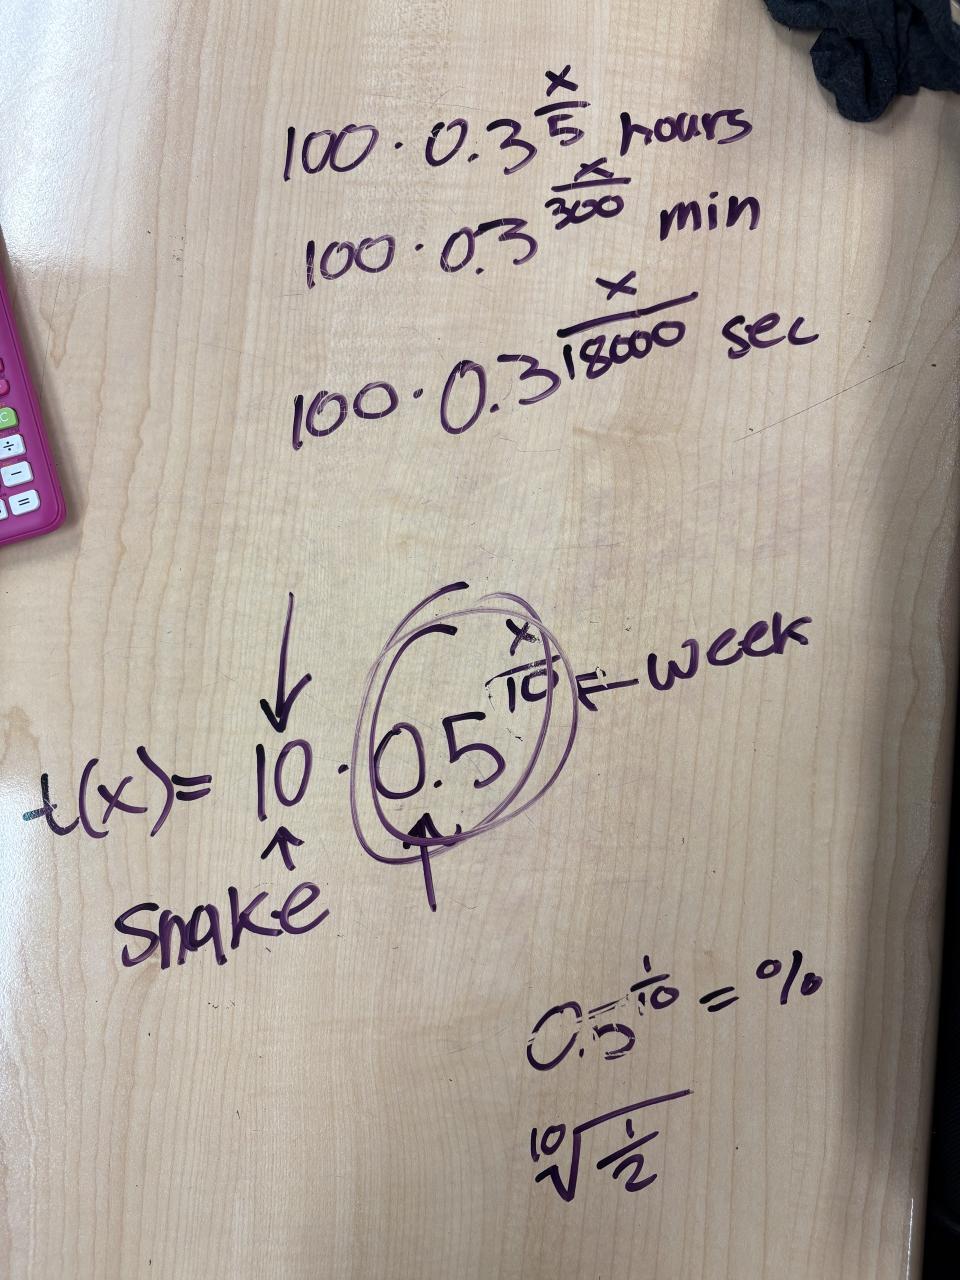 100 · 0.3^(x/5) hours
100 · 0.3^(x/300) min
100 · 0.3^(x/18000) sec
t(x) = 10 · 0.5^(x/10) ← week
↑ ↑
snake
0.5^(1/10) = %
¹⁰√(1/2)
C
÷
−
=